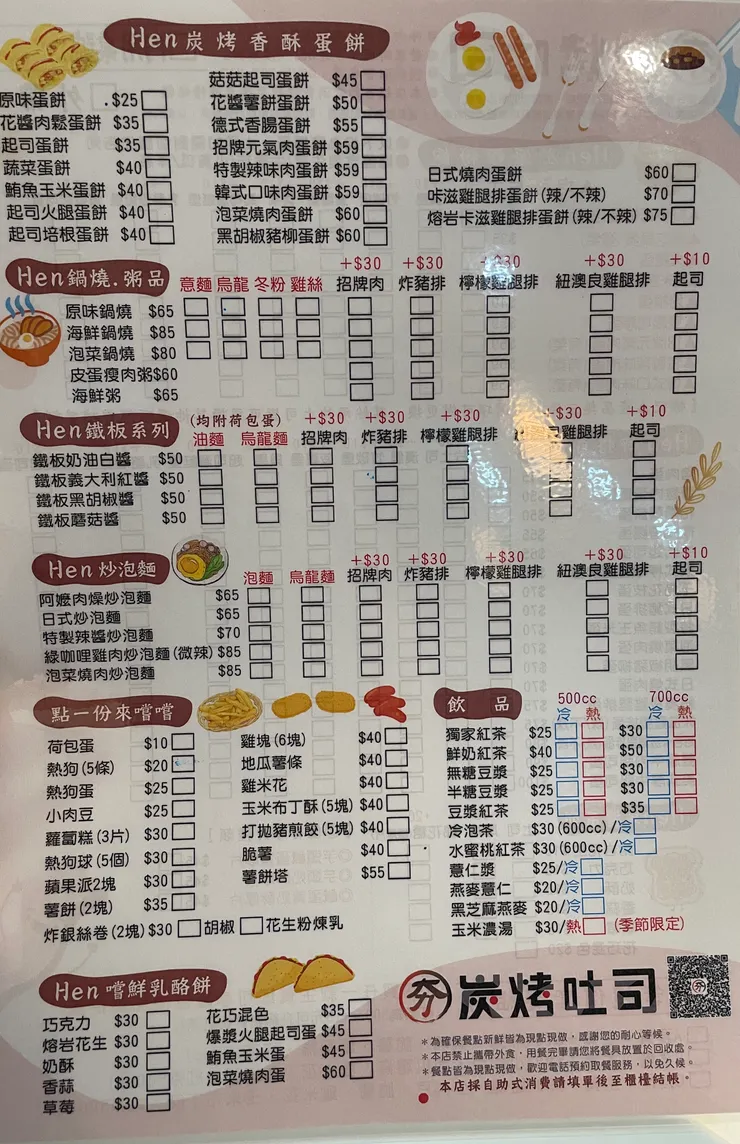 Hen炭烤香酥蛋餅
原味蛋餅 $25
花醬肉鬆蛋餅 $35
起司蛋餅 $35
蔬菜蛋餅 $40
鮪魚玉米蛋餅 $40
起司火腿蛋餅 $40
起司培根蛋餅 $40
菇菇起司蛋餅 $45
花醬薯餅蛋餅 $50
德式香腸蛋餅 $55
招牌元氣肉蛋餅 $59
特製辣味肉蛋餅 $59
韓式口味肉蛋餅 $59
泡菜燒肉蛋餅 $60
黑胡椒豬柳蛋餅 $60
日式燒肉蛋餅 $60
咔滋雞腿排蛋餅(辣/不辣) $70
熔岩卡滋雞腿排蛋餅(辣/不辣) $75
Hen鍋燒.粥品
意麵 烏龍 冬粉 雞絲
+$30 +$30 +$30 +$30 +$10
招牌肉 炸豬排 檸檬雞腿排 紐澳良雞腿排 起司
原味鍋燒 $65
海鮮鍋燒 $85
泡菜鍋燒 $80
皮蛋瘦肉粥 $60
海鮮粥 $65
Hen鐵板系列
(均附荷包蛋)
油麵 烏龍麵
+$30 +$30 +$30 +$30 +$10
招牌肉 炸豬排 檸檬雞腿排 雞腿排 起司
鐵板奶油白醬 $50
鐵板義大利紅醬 $50
鐵板黑胡椒醬 $50
鐵板蘑菇醬 $50
Hen炒泡麵
泡麵 烏龍麵
+$30 +$30 +$30 +$30 +$10
招牌肉 炸豬排 檸檬雞腿排 紐澳良雞腿排 起司
阿嬤肉燥炒泡麵 $65
日式炒泡麵 $65
特製辣醬炒泡麵 $70
綠咖哩雞肉炒泡麵(微辣) $85
泡菜燒肉炒泡麵 $85
點一份來嚐嚐
荷包蛋 $10
熱狗(5條) $20
熱狗蛋 $25
小肉豆 $25
蘿蔔糕(3片) $30
熱狗球(5個) $30
蘋果派2塊 $30
薯餅(2塊) $35
炸銀絲卷(2塊) $30 胡椒 花生粉煉乳
雞塊(6塊) $40
地瓜薯條 $40
雞米花 $40
玉米布丁酥(5塊) $40
打拋豬煎餃(5塊) $40
脆薯 $40
薯餅塔 $55
飲品
500cc 700cc
冷 熱 冷 熱
獨家紅茶 $25 $30
鮮奶紅茶 $40 $50
無糖豆漿 $25 $30
半糖豆漿 $25 $30
豆漿紅茶 $25 $35
冷泡茶 $30(600cc)/冷
水蜜桃紅茶 $30(600cc)/冷
薏仁漿 $25/冷
燕麥薏仁 $20/冷
黑芝麻燕麥 $20/冷
玉米濃湯 $30/熱 (季節限定)
Hen嚐鮮乳酪餅
巧克力 $30
熔岩花生 $30
奶酥 $30
香蒜 $30
草莓 $30
花巧混色 $35
爆漿火腿起司蛋 $45
鮪魚玉米蛋 $45
泡菜燒肉蛋 $60
夯 炭烤吐司
*為確保餐點新鮮皆為現點現做,感謝您的耐心等候。
*本店禁止攜帶外食,用餐完畢請您將餐具放置於回收處。
*餐點皆為現點現做,歡迎電話預約取餐服務,以免久候。
*本店採自助式消費請填單後至櫃檯結帳。